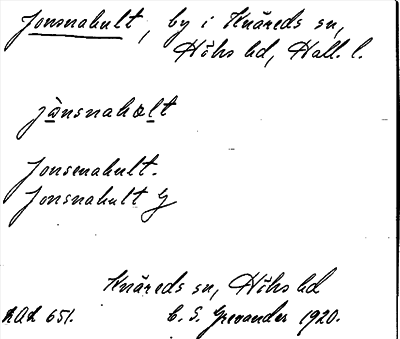 Jonsnahult, by i Knäreds sn,
Höks hd, Hall. l.
jònsnahult
Jonsenahult.
Jonsnahult G
Knäreds sn, Höks hd
RAÄ 651. C. S. Grevander 1920.